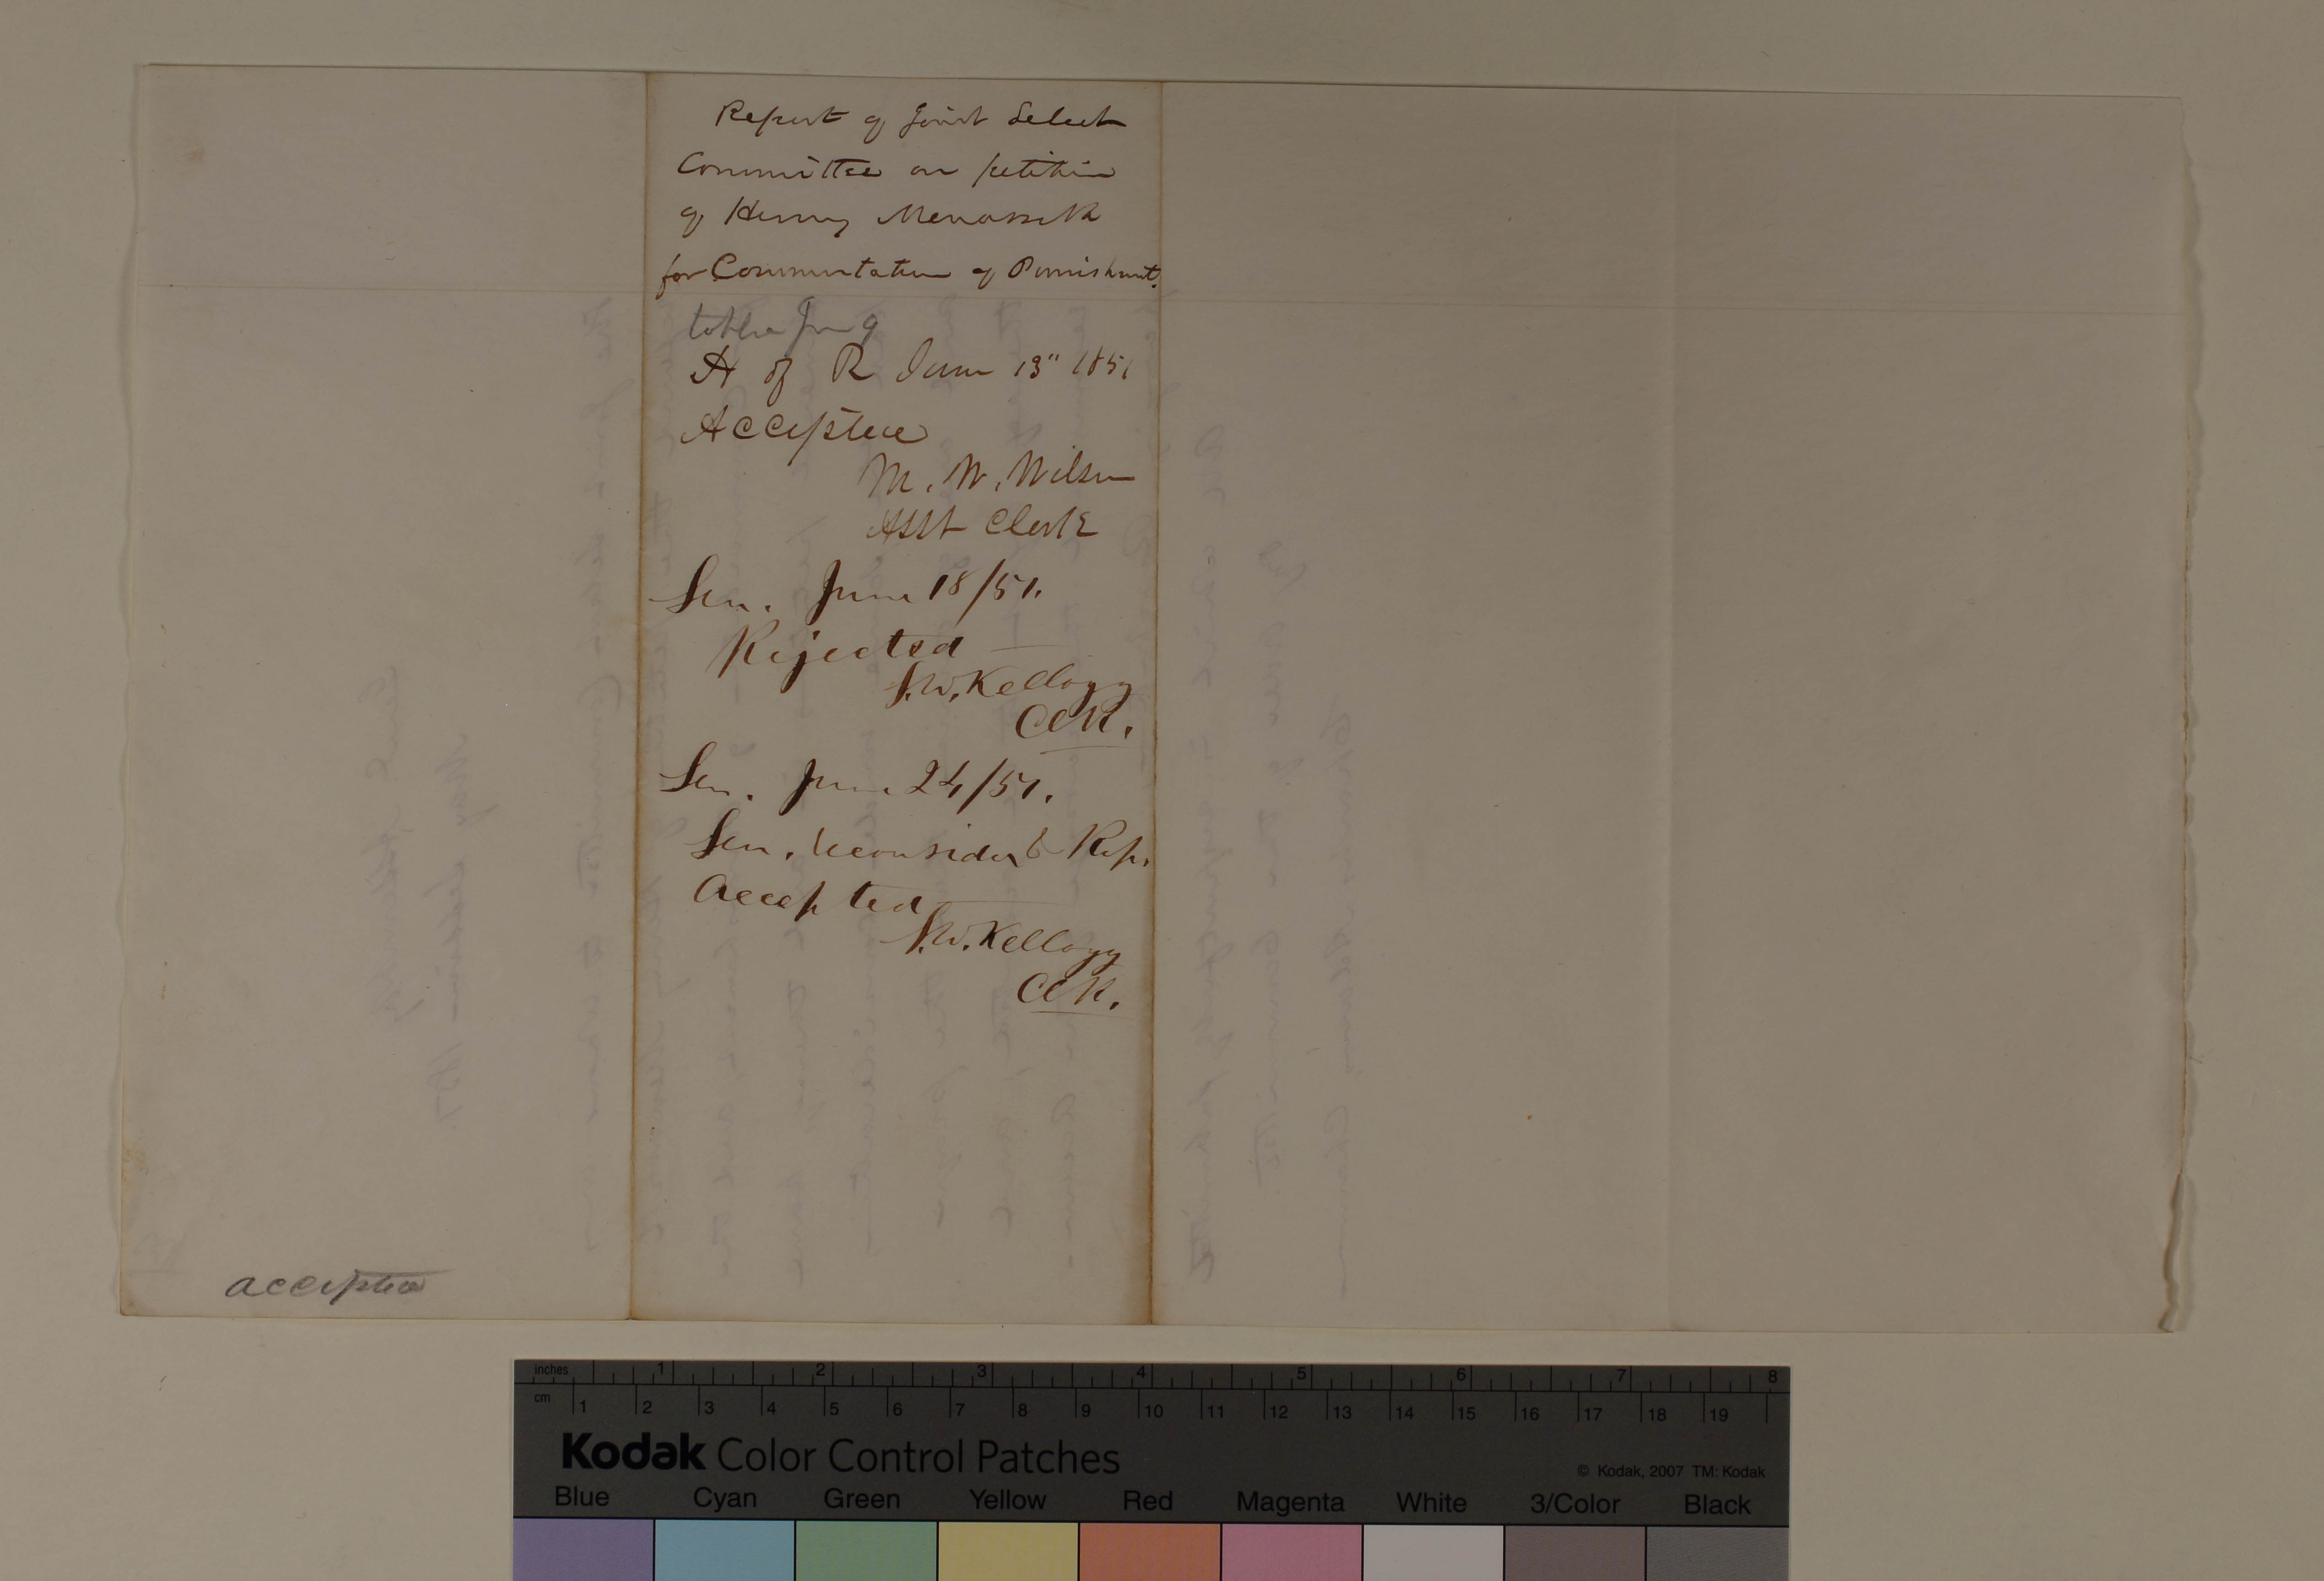 Report of Joint Select
Committee on petition
of Henry Menasseth
for Commutation of Punishmt.
table Jun 9
H of R June 13" 1851
Accepted
M. W. Wilson
Asst Clerk
Sen. June 18/51.
Rejected
S. W. Kellogg
Clk.
Sen. June 24/51.
Sen. reconsider & Rep.
accepted
S. W. Kellogg
Clk.
accepted
inches 1 2 3 4 5 6 7 8
cm 1 2 3 4 5 6 7 8 9 10 11 12 13 14 15 16 17 18 19
Kodak Color Control Patches
© Kodak, 2007 TM: Kodak
Blue Cyan Green Yellow Red Magenta White 3/Color Black